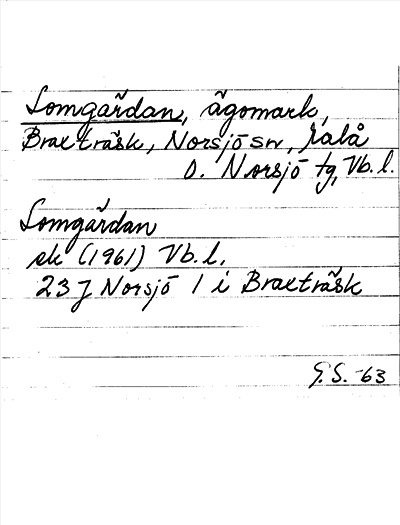 Lomgärdan, ägomark,
Braxträsk, Norsjö sn, Malå
o. Norsjö tg, Vb.l.
Lomgärdan
ek (1961) Vb.l.
23 J Norsjö 1 i Braxträsk
G.S. -63